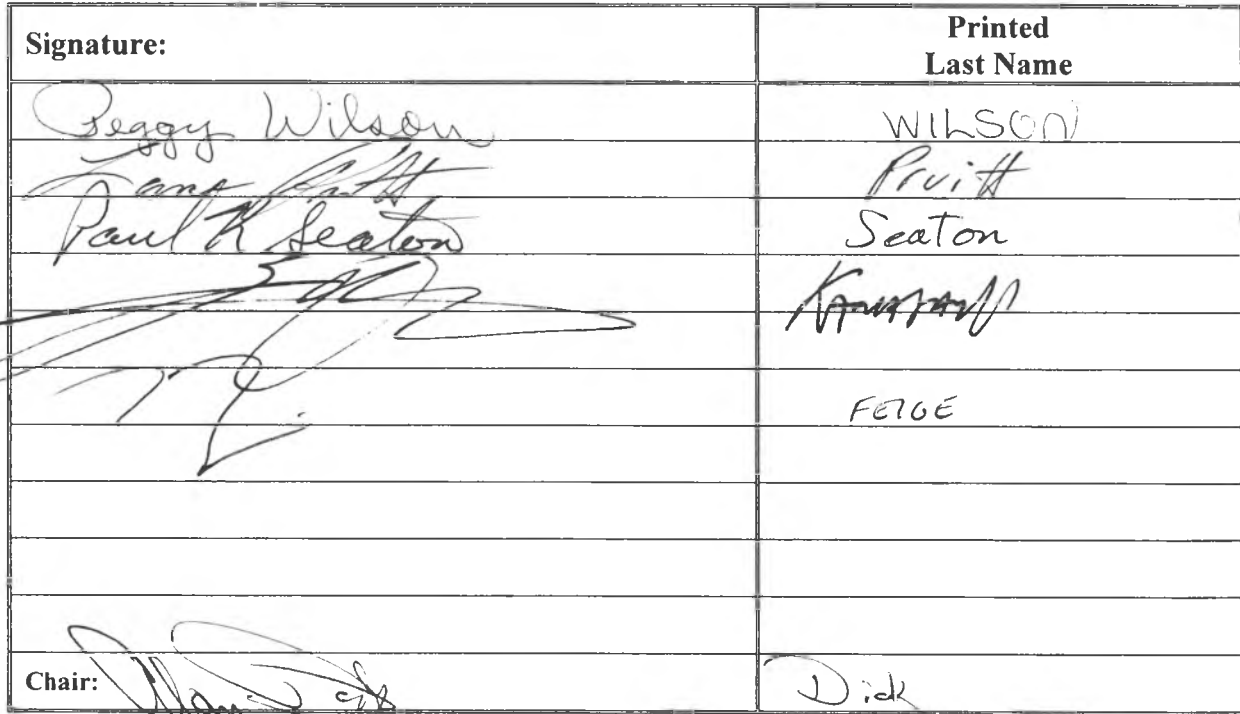 Signature: Printed
Last Name
Peggy Wilson WILSON
Lana Pruitt Pruitt
Paul K Seaton Seaton
FEIGE
Chair: Alan Dick Dick